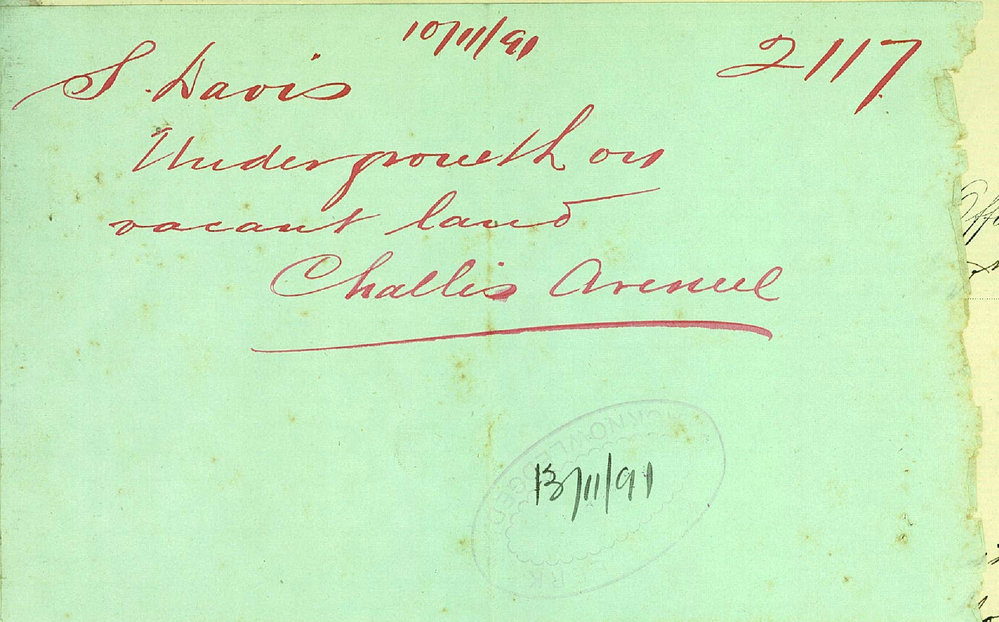 10/11/91
S. Davis 2117
Undergrowth on
vacant land
Challis Avenue
ACKNOWLEDGED
13/11/91